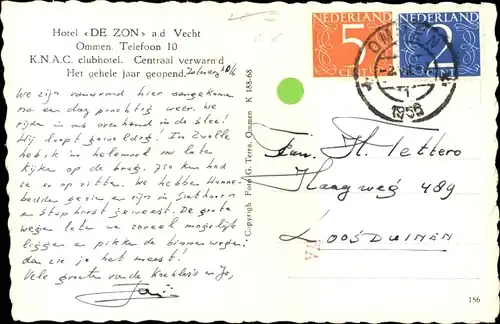 Hotel «DE ZON» a.d Vecht
Ommen. Telefoon 10
K.N.A.C. clubhotel. Centraal verwarmd
Het gehele jaar geopend. Zaterdag 30/6
We zijn vanavond hier aangekomen
na een dag prachtig weer. We
rijden in ons overhemd in de slee!
Hij loopt geweldig! In Zwolle
heb ik helemaal nu laten
kijken op de brug. 750 km had
ze er op zitten. We hebben Hunne-
bedden gezien en zijn in Giethoorn
en Staphorst geweest. De grote
wegen laten we zoveel mogelijk
liggen en pikken de binnenwegen.
dan zie je het meest!
Vele groeten van de en Jo,
Copyrigh Foto G. Terra, Ommen K 188-68
NEDERLAND
5
CENT
NEDERLAND
2
CENT
OMMEN
1956
Fam. H. Tettero
Haagweg 489
LOOSDUINEN
156